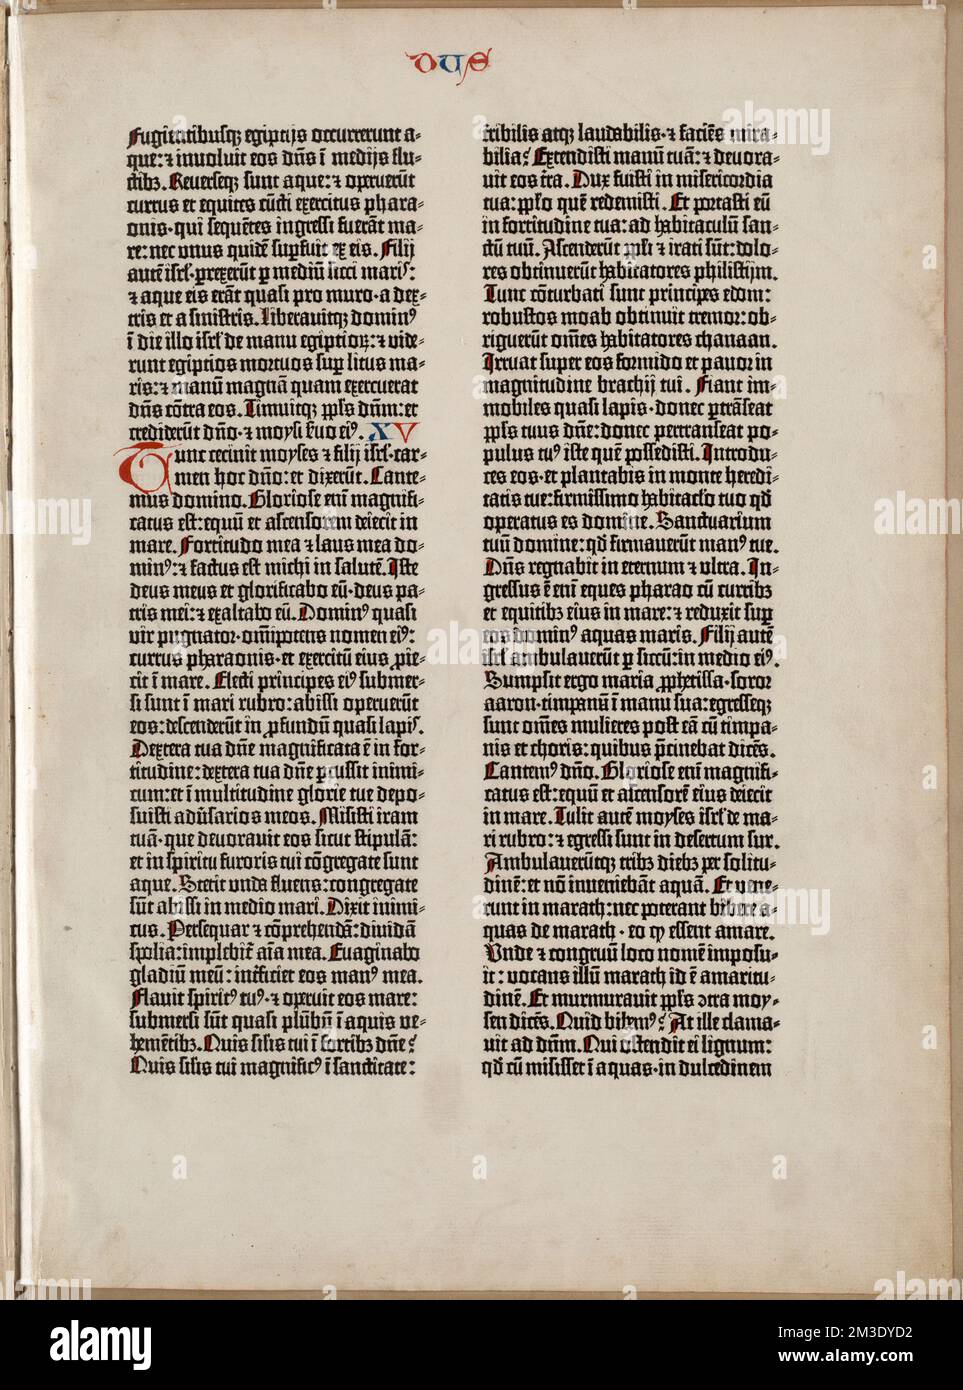 DUS
Fugiẽtibusqꝫ egiptijs occurrerunt a⸗
que: ⁊ inuoluit eos dñs ĩ medijs flu⸗
ctibꝫ. Reuerseqꝫ sunt aque: ⁊ operuerũt
currus et equites cũcti exercitus phara⸗
onis · qui sequẽtes ingressi fuerãt ma⸗
re: nec unus quidẽ suꝑfuit ex eis. Filij
autẽ isrl̃ · ꝑrexerũt ꝑ mediũ sicci marisꝰ:
⁊ aque eis erãt quasi pro muro · a dex⸗
tris et a sinistris. Liberauitqꝫ dominꝰ
ĩ die illo isrl̃ de manu egiptioꝝ: ⁊ vide⸗
runt egiptios mortuos suꝑ litus ma⸗
ris: ⁊ manũ magnã quam exercuerat
dñs cõtra eos. Timuitqꝫ pp̃ls dñm: et
crediderũt dño · ⁊ moysi s̃uo eiꝰ. XV
Tunc cecinit moyses ⁊ filij isrl̃ · car⸗
men hoc dño: et dixerũt. Cante⸗
mus domino. Gloriose eñi magnifi⸗
catus est: equũ et ascensorem deiecit in
mare. Fortitudo mea ⁊ laus mea do⸗
minꝰ: ⁊ factus est michi in salutẽ. Iste
deus meus et glorificabo eũ · deus pa⸗
tris mei: ⁊ exaltabo eũ. Dominꝰ quasi
vir pugnator · omĩpotens nomen eiꝰ:
currus pharaonis · et exercitũ eius ꝓie⸗
cit ĩ mare. Electi principes eiꝰ submer⸗
si sunt ĩ mari rubro: abissi operuerũt
eos: descenderũt in ꝓfundũ quasi lapis.
Dextera tua dñe magnificata ẽ in for⸗
titudine: dextera tua dñe ꝑcussit inimi⸗
cum: et ĩ multitudine glorie tue depo⸗
suisti adũsarios meos. Misisti iram
tuã · que deuorauit eos sicut stipulã:
et in spiritu furoris tui cõgregate sunt
aque. Stetit unda fluens: congregate
sũt abissi in medio mari. Dixit inimi⸗
cus. Persequar ⁊ cõprehendã: diuidã
spolia: implebit̃ aĩa mea. Euaginabo
gladiũ meũ: inťficiet eos manꝰ mea.
Flauit spiritꝰ tuꝰ · ⁊ operuit eos mare:
submersi sũt quasi plũbũ ĩ aquis ve⸗
hemẽtibꝫ. Quis silis tui ĩ fortibꝫ dñe?
Quis silis tui magnificꝰ ĩ sanctitate:
terribilis atqꝫ laudabilis · ⁊ faciẽs mira⸗
bilia? Extendisti manũ tuã: ⁊ deuora⸗
uit eos ťra. Dux fuisti in misericordia
tua: pp̃lo quẽ redemisti. Et portasti eũ
in fortitudine tua: ad habitaculũ san⸗
ctũ tuũ. Ascenderũt pp̃li ⁊ irati sũt: dolo⸗
res obtinuerũt habitatores philistijm.
Tunc cõturbati sunt principes edom:
robustos moab obtinuit tremor: ob⸗
riguerũt om̃es habitatores chanaan.
Irruat super eos formido et pauor in
magnitudine brachij tui. Fiant im⸗
mobiles quasi lapis · donec ꝑtrãseat
pp̃ls tuus dñe: donec pertranseat po⸗
pulus tuꝰ iste quẽ possedisti. Introdu⸗
ces eos · et plantabis in monte heredi⸗
tatis tue: firmissimo habitac̃lo tuo qd̃
operatus es domine. Sanctuarium
tuũ domine: qd̃ firmauerũt manꝰ tue.
Dñs regnabit in eternum ⁊ ultra. In⸗
gressus ẽ eñi eques pharao cũ curribꝫ
et equitibꝫ eius in mare: ⁊ reduxit suꝑ
eos dominꝰ aquas maris. Filij autẽ
isrl̃ ambulauerũt ꝑ siccũ: in medio eiꝰ.
Sumpsit ergo maria ꝓphetissa · soror
aaron · timpanũ ĩ manu sua: egresseqꝫ
sunt om̃es mulieres post eã cũ timpa⸗
nis et choris: quibus p̃cinebat dicẽs.
Cantemꝰ dño. Gloriose eñi magnifi⸗
catus est: equũ et ascensorẽ eius deiecit
in mare. Tulit autẽ moyses isrl̃ de ma⸗
ri rubro: ⁊ egressi sunt in desertum sur.
Ambulauerũtqꝫ tribꝫ diebꝫ per solitu⸗
dinẽ: et nõ inueniebãt aquã. Et vene⸗
runt in marath: nec poterant bibere a⸗
quas de marath · eo ꝙ essent amare.
Unde ⁊ congruũ loco nomẽ imposu⸗
it: vocans illũ marath id ẽ amaritu⸗
dinẽ. Et murmurauit pp̃ls ↄtra moy⸗
sen dicẽs. Quid bibemꝰ? At ille clama⸗
uit ad dñm. Qui ostendit ei lignum:
qd̃ cũ misisset ĩ aquas · in dulcedinem
alamy
Image ID: 2M3DYD2
www.alamy.com